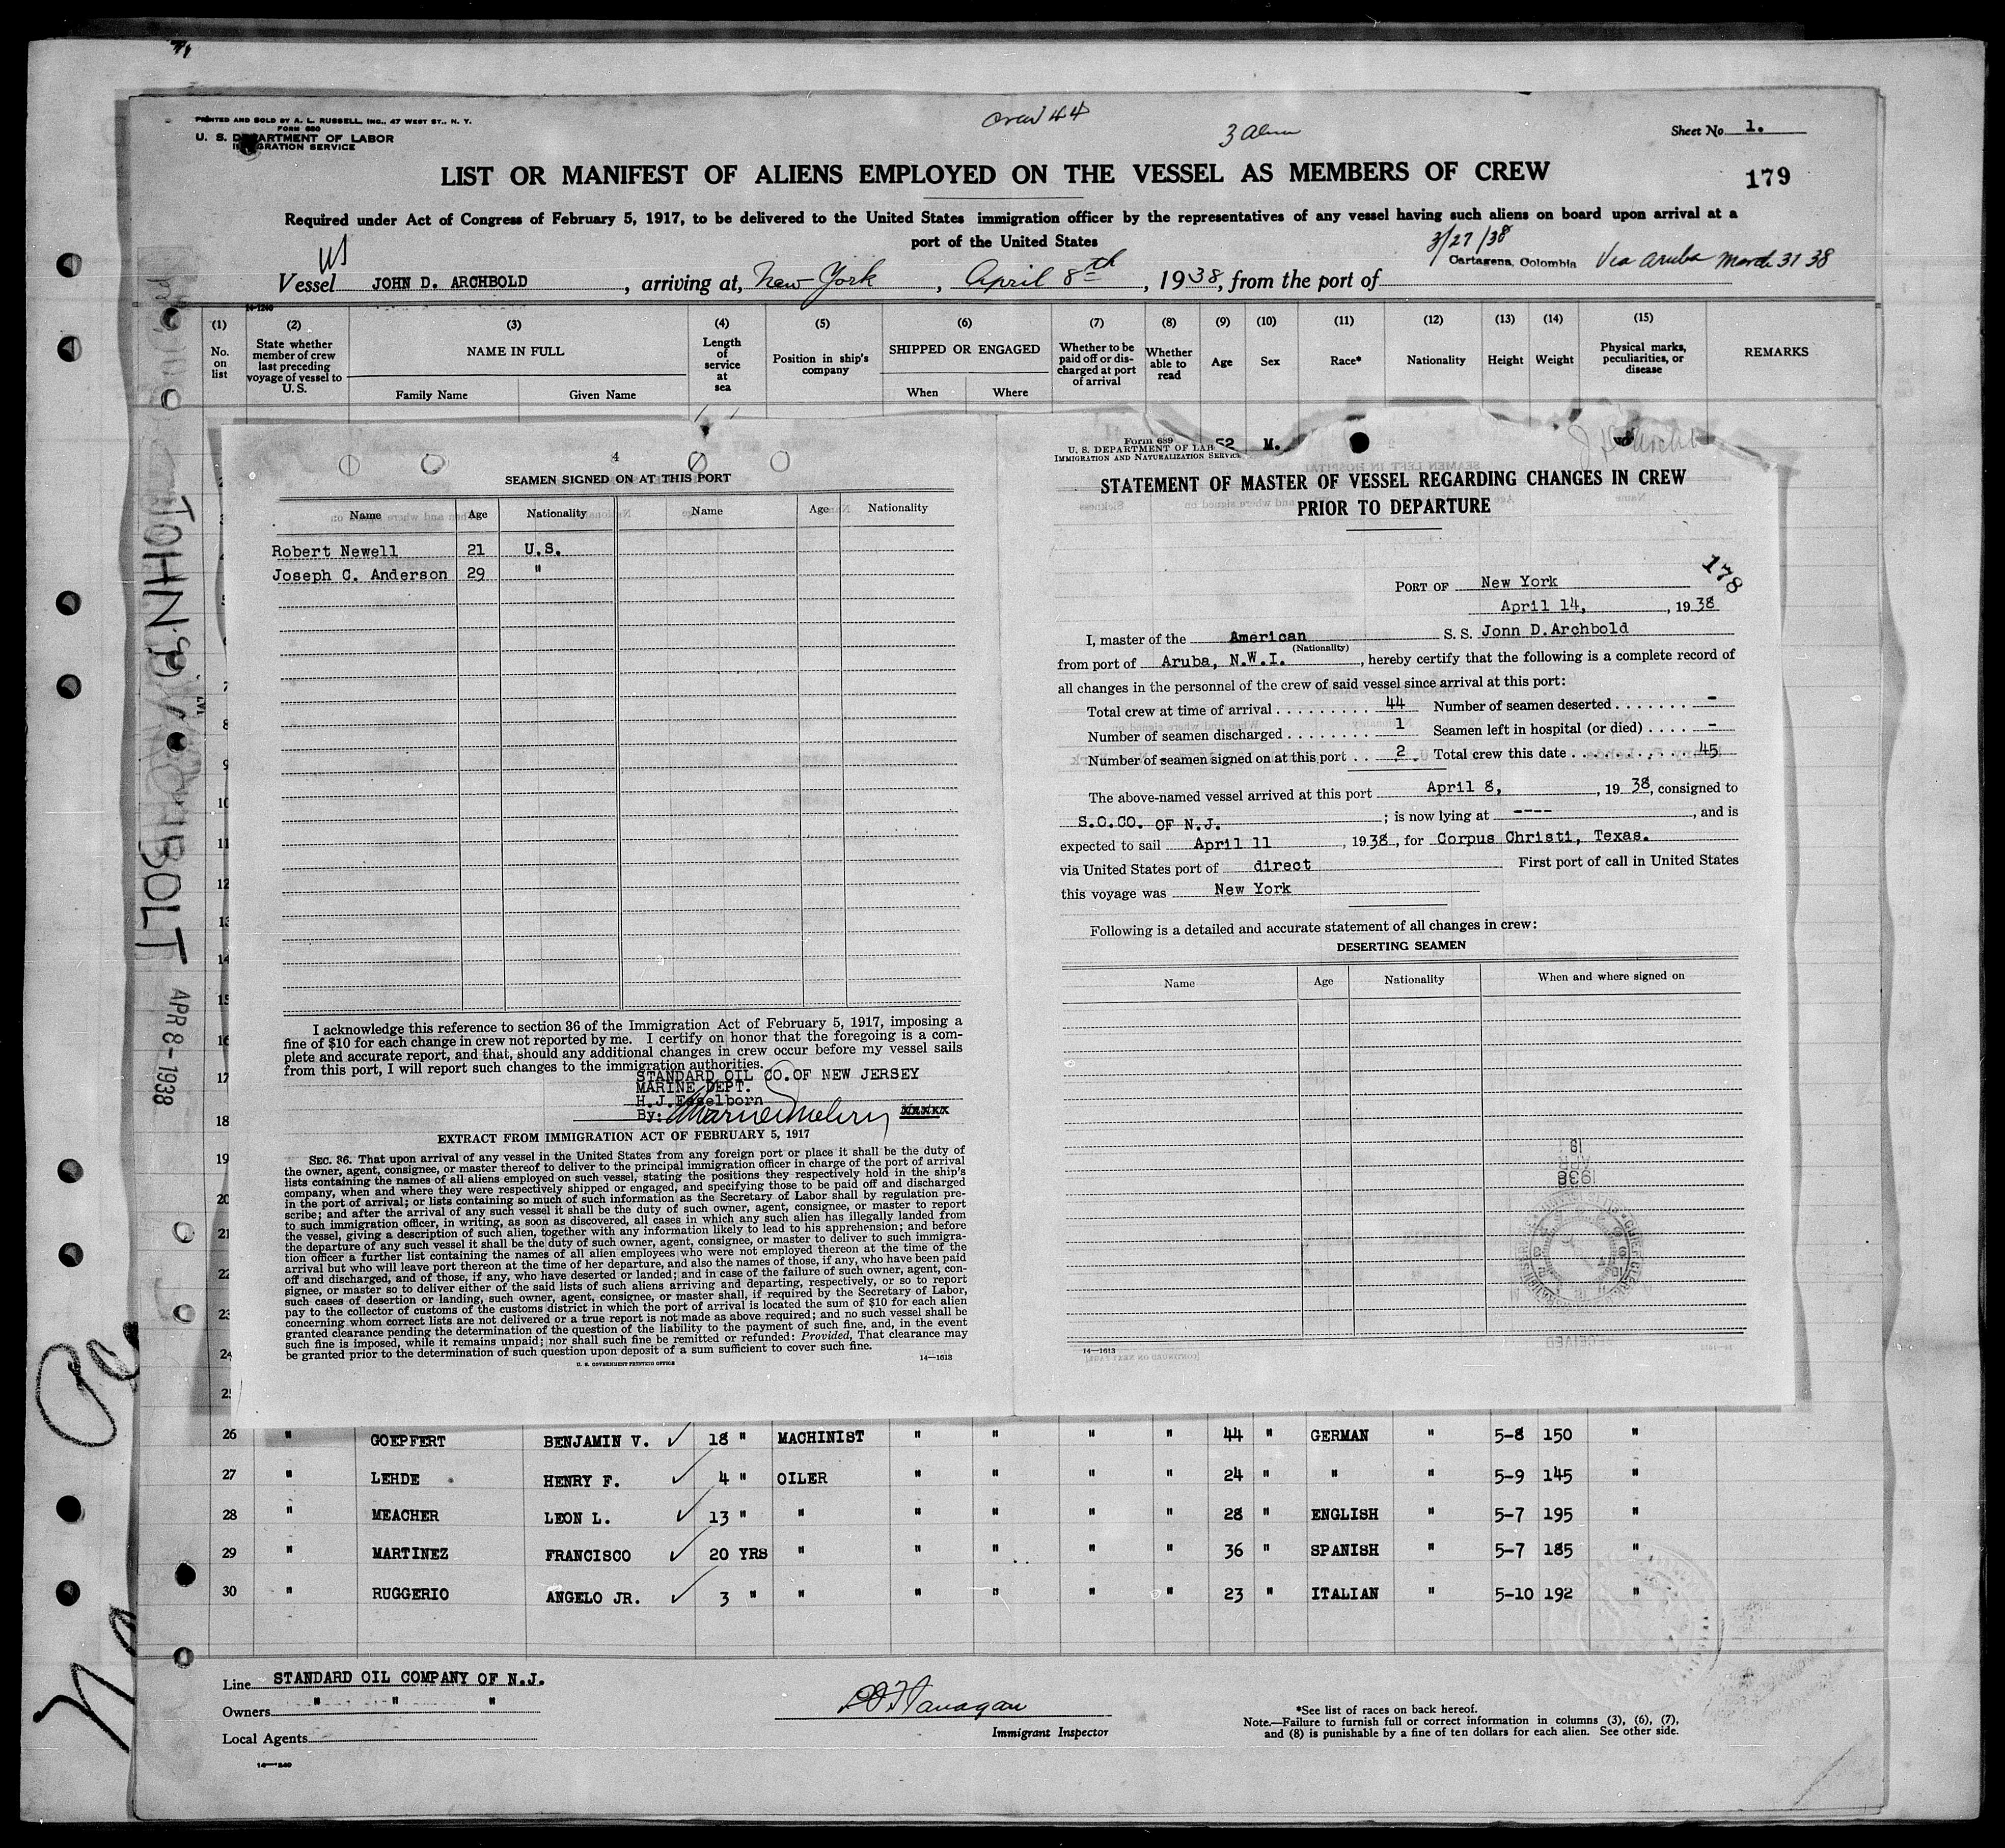 PRINTED AND SOLD BY A. L. RUSSELL, INC., 47 WEST ST., N. Y.
FORM 680
U. S. DEPARTMENT OF LABOR
IMMIGRATION SERVICE
crew 44
3 Alien
Sheet No. 1.
LIST OR MANIFEST OF ALIENS EMPLOYED ON THE VESSEL AS MEMBERS OF CREW
179
Required under Act of Congress of February 5, 1917, to be delivered to the United States immigration officer by the representatives of any vessel having such aliens on board upon arrival at a
port of the United States
US
3/27/38
Vessel JOHN D. ARCHBOLD, arriving at, New York, April 8th, 1938, from the port of Cartagena, Colombia Via Aruba March 31 38
14-1240
(1) (2) (3) (4) (5) (6) (7) (8) (9) (10) (11) (12) (13) (14) (15)
No. on list
State whether member of crew last preceding voyage of vessel to U. S.
NAME IN FULL
Family Name Given Name
Length of service at sea
Position in ship's company
SHIPPED OR ENGAGED
When Where
Whether to be paid off or discharged at port of arrival
Whether able to read
Age
Sex
Race*
Nationality
Height
Weight
Physical marks, peculiarities, or disease
REMARKS
52 M.
4
SEAMEN SIGNED ON AT THIS PORT
Name Age Nationality Name Age Nationality
Robert Newell 21 U.S.
Joseph C. Anderson 29 "
I acknowledge this reference to section 36 of the Immigration Act of February 5, 1917, imposing a
fine of $10 for each change in crew not reported by me. I certify on honor that the foregoing is a com-
plete and accurate report, and that, should any additional changes in crew occur before my vessel sails
from this port, I will report such changes to the immigration authorities.
STANDARD OIL CO. OF NEW JERSEY
MARINE DEPT.
H.J. Esselborn
By:
EXTRACT FROM IMMIGRATION ACT OF FEBRUARY 5, 1917
SEC. 36. That upon arrival of any vessel in the United States from any foreign port or place it shall be the duty of
the owner, agent, consignee, or master thereof to deliver to the principal immigration officer in charge of the port of arrival
lists containing the names of all aliens employed on such vessel, stating the positions they respectively hold in the ship's
company, when and where they were respectively shipped or engaged, and specifying those to be paid off and discharged
in the port of arrival; or lists containing so much of such information as the Secretary of Labor shall by regulation pre-
scribe; and after the arrival of any such vessel it shall be the duty of such owner, agent, consignee, or master to report
to such immigration officer, in writing, as soon as discovered, all cases in which any such alien has illegally landed from
the vessel, giving a description of such alien, together with any information likely to lead to his apprehension; and before
the departure of any such vessel it shall be the duty of such owner, agent, consignee, or master to deliver to such immigra-
tion officer a further list containing the names of all alien employees who were not employed thereon at the time of the
arrival but who will leave port thereon at the time of her departure, and also the names of those, if any, who have been paid
off and discharged, and of those, if any, who have deserted or landed; and in case of the failure of such owner, agent, con-
signee, or master so to deliver either of the said lists of such aliens arriving and departing, respectively, or so to report
such cases of desertion or landing, such owner, agent, consignee, or master shall, if required by the Secretary of Labor,
pay to the collector of customs of the customs district in which the port of arrival is located the sum of $10 for each alien
concerning whom correct lists are not delivered or a true report is not made as above required; and no such vessel shall be
granted clearance pending the determination of the question of the liability to the payment of such fine, and, in the event
such fine is imposed, while it remains unpaid; nor shall such fine be remitted or refunded: Provided, That clearance may
be granted prior to the determination of such question upon deposit of a sum sufficient to cover such fine.
U. S. GOVERNMENT PRINTING OFFICE
14—1613
Form 689
U. S. DEPARTMENT OF LAB
IMMIGRATION AND NATURALIZATION SERVICE
STATEMENT OF MASTER OF VESSEL REGARDING CHANGES IN CREW
PRIOR TO DEPARTURE
178
PORT OF New York
April 14, , 1938
I, master of the American S. S. Jonn D.Archbold
(Nationality)
from port of Aruba, N.W.I. , hereby certify that the following is a complete record of
all changes in the personnel of the crew of said vessel since arrival at this port:
Total crew at time of arrival . . . . . . . . . . 44 Number of seamen deserted . . . . . . . -
Number of seamen discharged . . . . . . . . 1 Seamen left in hospital (or died) . . . . -
Number of seamen signed on at this port . . 2 Total crew this date . . . . . . . . . . 45
The above-named vessel arrived at this port April 8, , 1938, consigned to
S.O.CO. OF N.J. ; is now lying at ---- , and is
expected to sail April 11 , 1938, for Corpus Christi, Texas.
via United States port of direct First port of call in United States
this voyage was New York
Following is a detailed and accurate statement of all changes in crew:
DESERTING SEAMEN
Name Age Nationality When and where signed on
14—1613
7
8
9
10
11
12
13
14
15
16
17
18
19
20
21
22
23
24
25
26 " GOEPFERT BENJAMIN V. ✓ 18 " MACHINIST " " " " 44 " GERMAN " 5-8 150 "
27 " LEHDE HENRY F. ✓ 4 " OILER " " " " 24 " " " 5-9 145 "
28 " MEACHER LEON L. ✓ 13 " " " " " " 28 " ENGLISH " 5-7 195 "
29 " MARTINEZ FRANCISCO ✓ 20 YRS " " " " " 36 " SPANISH " 5-7 185 "
30 " RUGGERIO ANGELO JR. ✓ 3 " " " " " " 23 " ITALIAN " 5-10 192 "
Line STANDARD OIL COMPANY OF N.J.
Owners " " "
Local Agents
Flanagan
Immigrant Inspector
*See list of races on back hereof.
Note.—Failure to furnish full or correct information in columns (3), (6), (7),
and (8) is punishable by a fine of ten dollars for each alien. See other side.
JOHN D. ARCHBOLT APR 8-1938